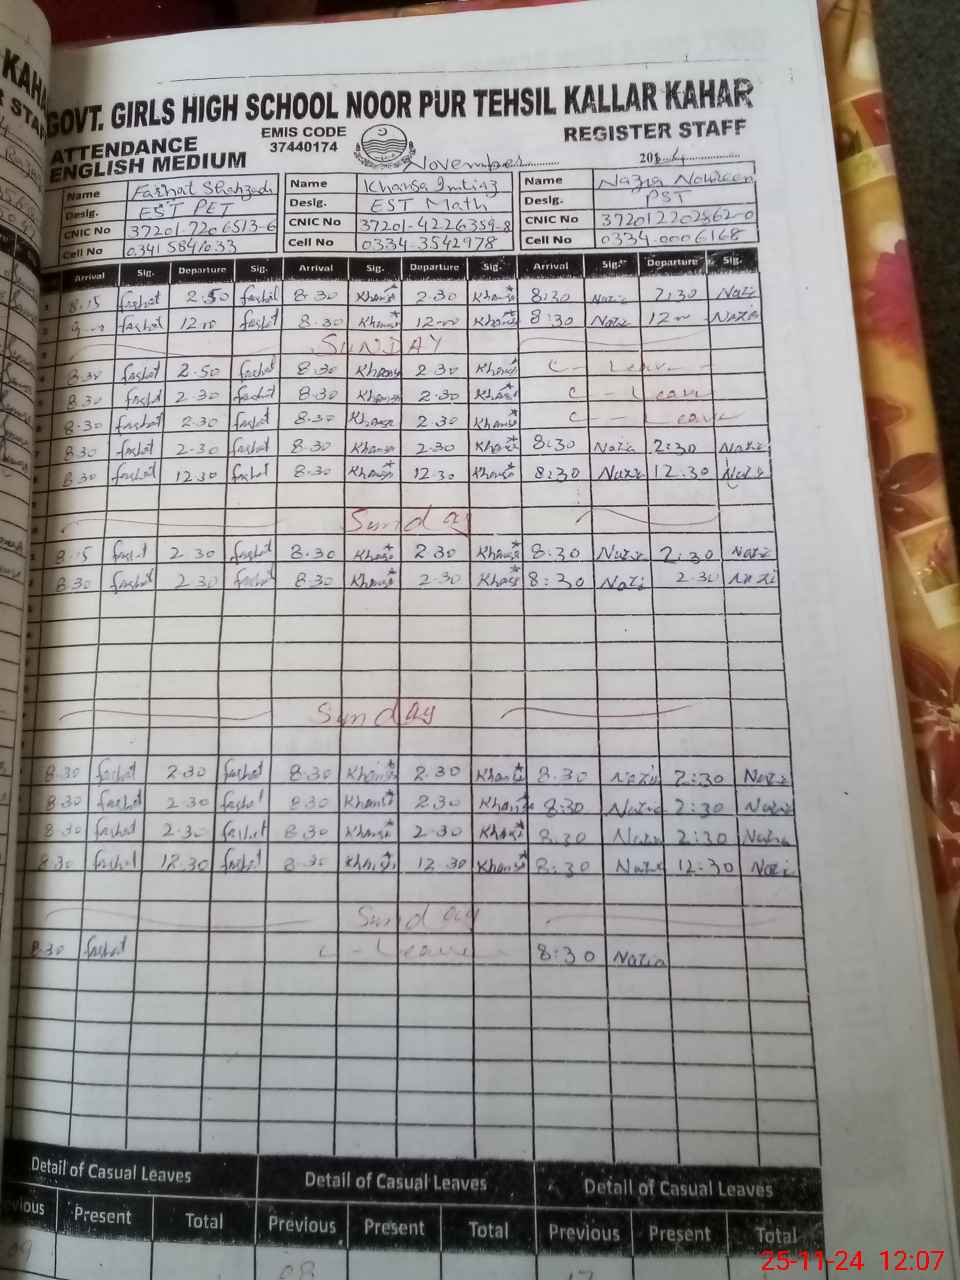 GOVT. GIRLS HIGH SCHOOL NOOR PUR TEHSIL KALLAR KAHAR
ATTENDANCE EMIS CODE REGISTER STAFF
ENGLISH MEDIUM 37440174 November 201
Name Farhat Shahzadi Name Khansa Imtiaz Name Nazia Noureen
Desig. EST PET Desig. EST Math Desig. PST
CNIC No 37201-7206513-6 CNIC No 37201-4226359-8 CNIC No
Cell No 0341 5841633 Cell No 0334-3542978 Cell No 0334-0006168
Arrival Sig. Departure Sig. Arrival Sig. Departure Sig. Arrival Sig. Departure Sig.
8.15 farhat 2.50 farhat 8.30 Khansa 2.30 Khansa 8:30 Nazi 2:30 Nazi
farhat 12 farhat 8.30 Khansa 12 Khansa 8:30 Nazi 12 Nazi
SUNDAY
8.30 farhat 2.50 farhat 8.30 Khansa 2.30 Khansa C - Leave
8.30 farhat 2.30 farhat 8.30 Khansa 2.30 Khansa C - Leave
8.30 farhat 2.30 farhat 8.30 Khansa 2.30 Khansa C - Leave
8.30 farhat 2.30 farhat 8.30 Khansa 2.30 Khansa 8:30 Nazia 2:30 Nazi
8.30 farhat 12.30 farhat 8.30 Khansa 12.30 Khansa 8:30 Nazi 12.30 Nazi
Sunday
8.15 farhat 2.30 farhat 8.30 Khansa 2.30 Khansa 8:30 Nazi 2:30 Nazi
8.30 farhat 2.30 farhat 8.30 Khansa 2.30 Khansa 8:30 Nazi 2.30 Nazi
Sunday
8.30 farhat 2.30 farhat 8.30 Khansa 2.30 Khansa 8.30 Nazi 2:30 Nazi
8.30 farhat 2.30 farhat 8.30 Khansa 2.30 Khansa 8:30 Nazia 2:30 Nazi
8.30 farhat 2.30 farhat 8.30 Khansa 2.30 Khansa 8.30 Nazi 2:30 Nazia
8.30 farhat 12.30 farhat 8.30 Khansa 12.30 Khansa 8:30 Nazi 12:30 Nazi
Sunday
8.30 farhat C - Leave 8:30 Nazia
Detail of Casual Leaves Detail of Casual Leaves Detail of Casual Leaves
Present Total Previous Present Total Previous Present Total
09 08
25-11-24 12:07